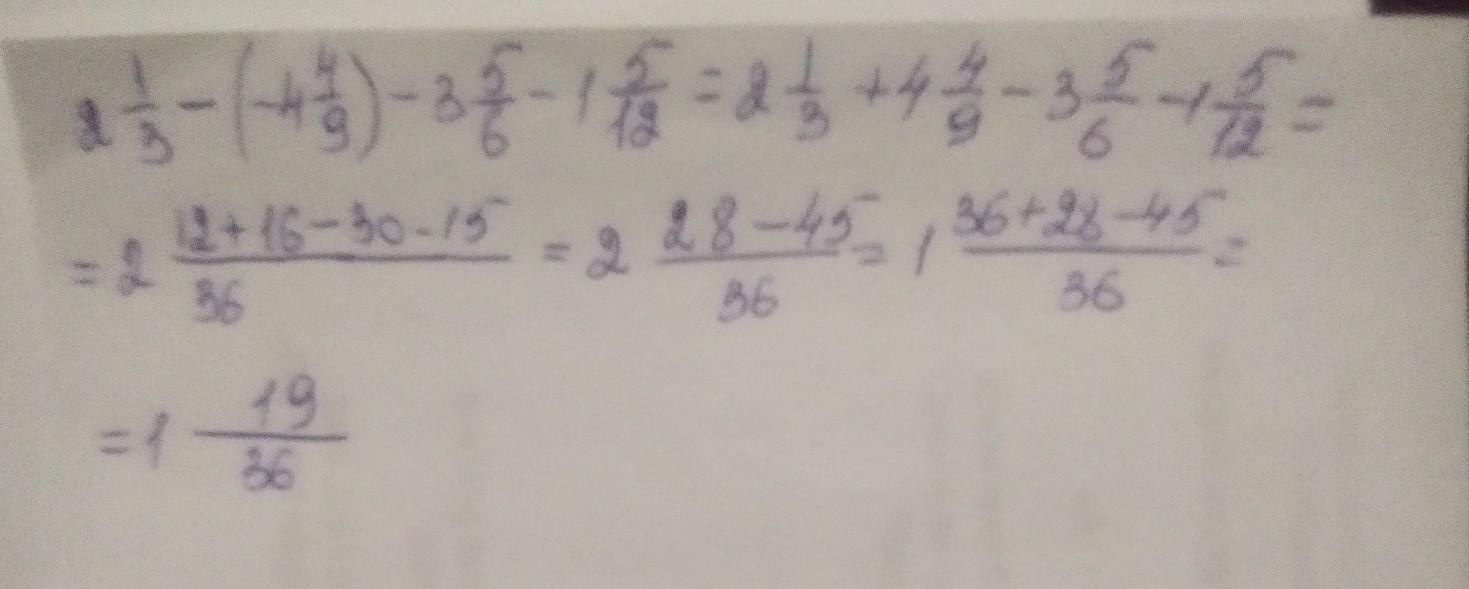 2 1/3 − (−4 4/9) − 3 5/6 − 1 5/12 = 2 1/3 + 4 4/9 − 3 5/6 − 1 5/12 =
= 2 (12+16−30−15)/36 = 2 (28−45)/36 = 1 (36+28−45)/36 =
= 1 19/36